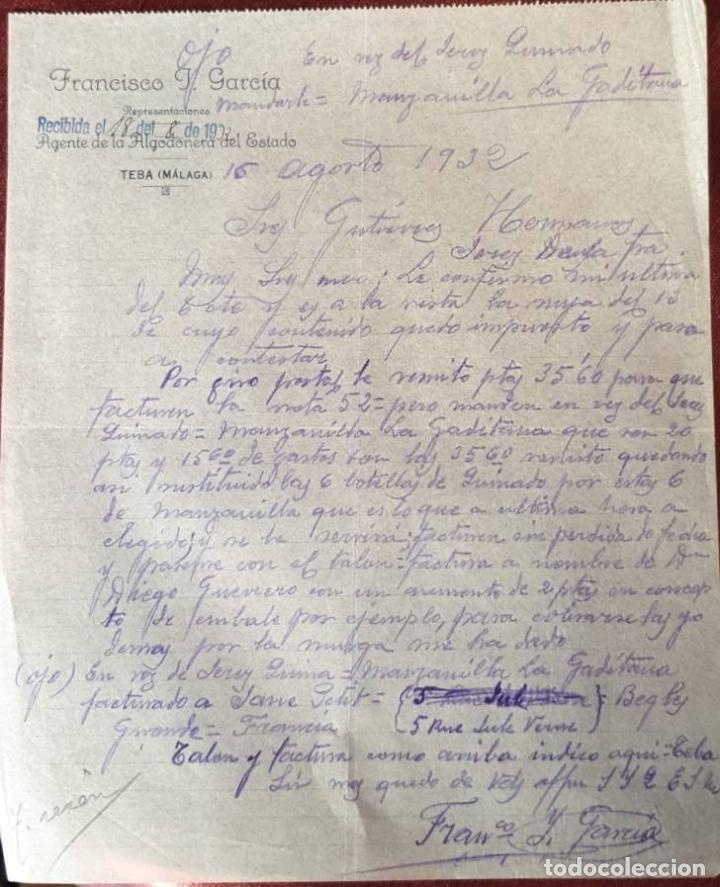 ojo En vez del Jerez Quinado
mandarle = Manzanilla La Gaditana
Francisco Y. García
Representaciones
Recibida el 18 del 8 de 19
Agente de la Algodonera del Estado
TEBA (MÁLAGA)
15 agosto 1932
Sres Gutiérrez Hermanos
Jerez
Muy Sres mio; Le confirmo mi ultima
del 6 y es a la vista la suya del 13
de cuyo contenido quedo impuesto y paso
a contestar
Por giro postal le remito ptas 35'60 para que
facturen la nota 52 = pero manden en vez del Jerez
Quinado = Manzanilla La Gaditana que son 20
ptas y 15'60 de gastos son las 35'60 remito quedando
asi sustituida las 6 botellas de Quinado por estas 6
de Manzanilla que es lo que a ultima hora a
elegido; y se le facturen sin perdida de fecha
y con el talon = factura a nombre de Dn
Diego Guerrero con un aumento de 2 ptas en concep
to de embale por ejemplo, para cobrarselas yo
demas por la me ha dado
(ojo) En vez de Jerez Quina = Manzanilla La Gaditana
facturado a = = Begles
5 Rue Jule Verne
Gironde = Francia
Talon y factura como arriba indico aqui = Teba
Sin mas quedo de Vds
Franco Y. García
todocoleccion.net